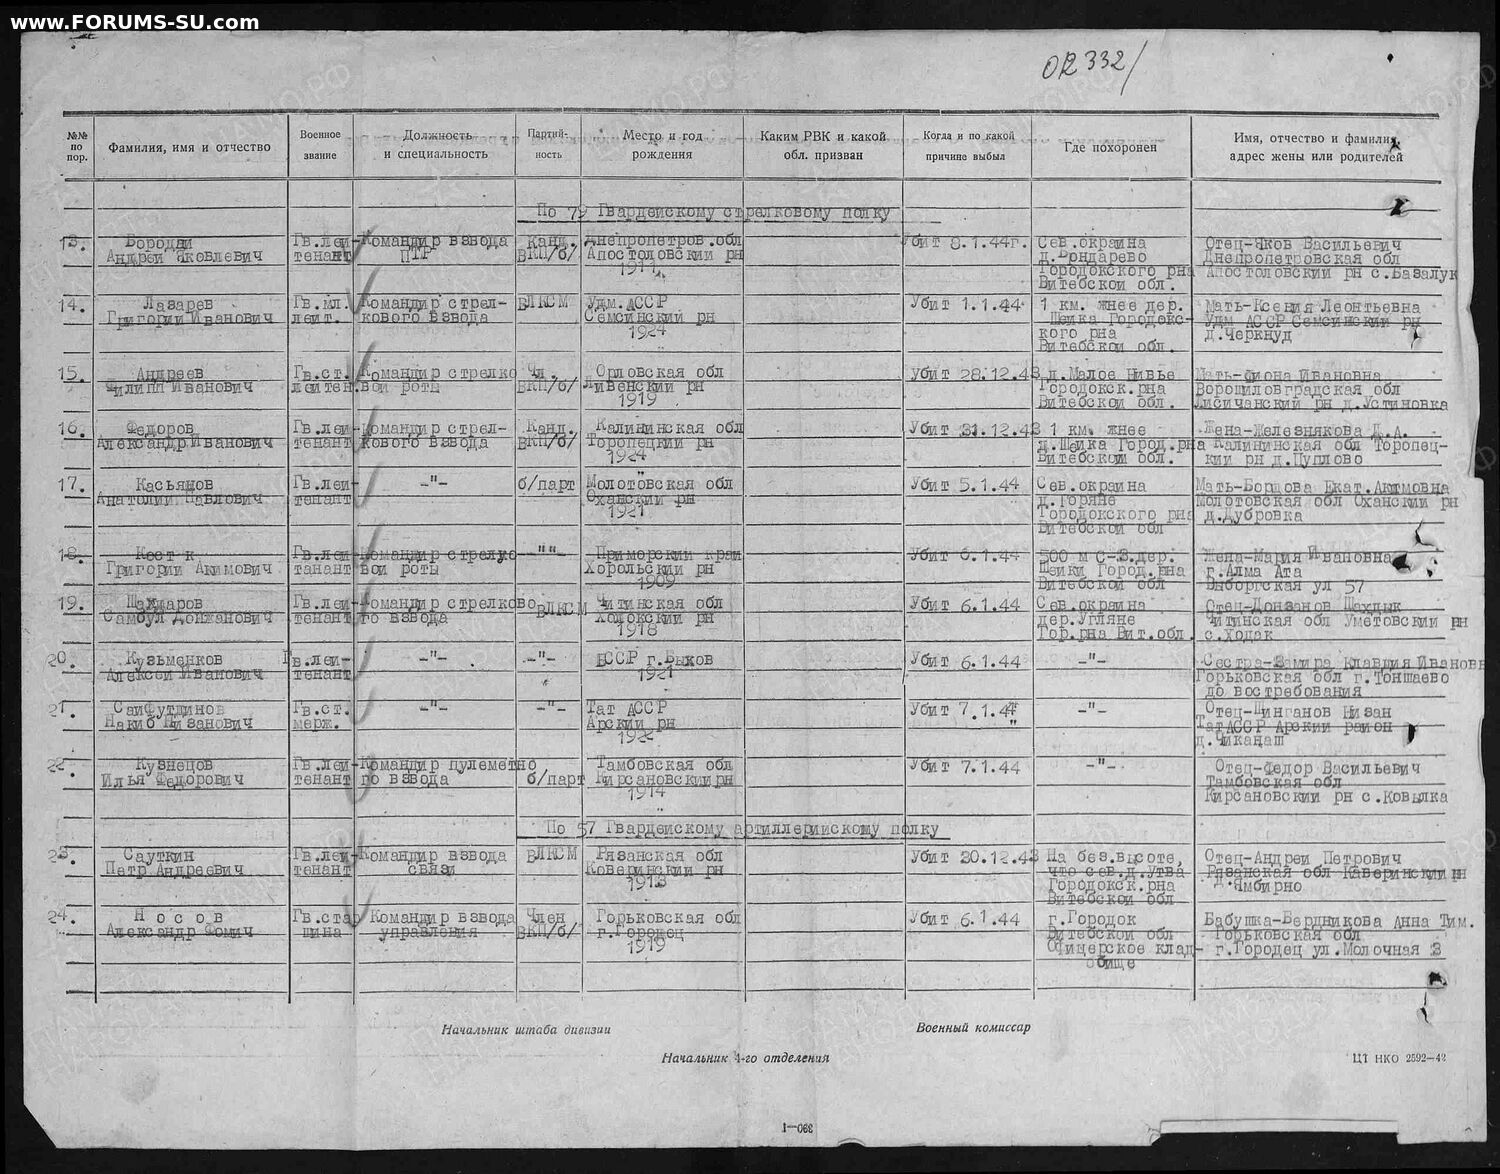 www.FORUMS-SU.com
№№ по пор.
Фамилия, имя и отчество
Военное звание
Должность и специальность
Партий- ность
Место и год рождения
Каким РВК и какой обл. призван
Когда и по какой причине выбыл
Где похоронен
Имя, отчество и фамилия, адрес жены или родителей
По 79 Гвардейскому стрелковому полку
13. Бородай Гв.лей- Командир взвода Канд. Днепропетров.обл Убит 8.1.44г. Сев.окраина Отец-Яков Васильевич
Андрей Яковлевич тенант ПТР ВКП/б/ Апостоловский рн д.Бондарево Днепропетровская обл
1911 Городокского рна Апостоловский рн с.Базалук
Витебской обл.
14. Лазарев Гв.мл. Командир стрел- ВЛКСМ Удм.АССР Убит 1.1.44 1 км. жнее дер. Мать-Ксения Леонтьевна
Григорий Иванович лейт. кового взвода Семсинский рн Шейка Городокс- Удм АССР Семсинский рн
1924 кого рна д.Черкнуд
Витебской обл.
15. Андреев Гв.ст. Командир стрелко Чл. Орловская обл Убит 28.12.43 д.Малое Нивье Мать-Фиона Ивановна
Филипп Иванович лейтен. вой роты ВКП/б/ Ливенский рн Городокск.рна Ворошиловградская обл
1919 Витебской обл. Лисичанский рн д.Устиновка
16. Федоров Гв.лей- Командир стрел- Канд. Калининская обл Убит 31.12.43 1 км. жнее Жена-Железнякова Д.А.
Александр Иванович тенант кового взвода ВКП/б/ Торопецкий рн д.Шейка Город.рна Калининская обл Торопец-
1924 Витебской обл. кий рн д.Цуплово
17. Касьянов Гв.лей- -"- б/парт Молотовская обл Убит 5.1.44 Сев.окраина Мать-Борцова Екат.Акимовна
Анатолий Павлович тенант Оханский рн д.Горяне Молотовская обл Оханский рн
1921 Городокского рна д.Дубровка
Витебской обл
18. Григорий Акимович Гв.лей- танант Командир стрелко вой роты -""- Приморский край Убит 6.1.44 500 м С-З.дер. Жена-Мария Ивановна
Хорольский рн Шейки Город.рна г.Алма Ата
1909 Витебской обл Выборгская ул 57
19. Шахдаров Гв.лей- Командир стрелково ВЛКСМ Читинская обл Убит 6.1.44 Сев.окраина Отец-Донзанов Шахдык
Самбул Донжанович тенант го взвода Ходокский рн дер.Угляне Читинская обл Уметовский рн
1918 Гор.рна Вит.обл. с.Ходак
20. Кузьменков Гв.лей- -"- -"- БССР г.Быхов Убит 6.1.44 -"- Сестра-Замира Клавдия Ивановн
Алексей Иванович тенант 1921 Горьковская обл г.Тоншаево
до востребования
21. Сайфутдинов Гв.ст. -"- -"- Тат АССР Убит 7.1.44 -"- Отец-Шинганов Низан
Накиб Низанович мерж. Арский рн " ТатАССР Арский район
д.Чиканаш
22. Кузнецов Гв.лей- Командир пулеметно Тамбовская обл Убит 7.1.44 -"- Отец-Федор Васильевич
Илья Федорович тенант го взвода б/парт Кирсановский рн Тамбовская обл
1914 Кирсановский рн с.Ковылка
По 57 Гвардейскому артиллерийскому полку
23. Сауткин Гв.лей- Командир взвода ВЛКСМ Рязанская обл Убит 30.12.43 На без.высоте, Отец-Андрей Петрович
Петр Андреевич тенант связи Каверинский рн что сев.д.Утва Рязанская обл Каверинский рн
1913 Городокск.рна д.Ямбирно
Витебской обл
24. Носов Гв.стар Командир взвода Член Горьковская обл Убит 6.1.44 г.Городок Бабушка-Бердникова Анна Тим.
Александр Фомич шина управления ВКП/б/ г.Городец Витебской обл Горьковская обл
1919 Офицерское клад- г.Городец ул.Молочная 3
бище
Начальник штаба дивизии
Военный комиссар
Начальник 4-го отделения
ЦТ НКО 2592—42